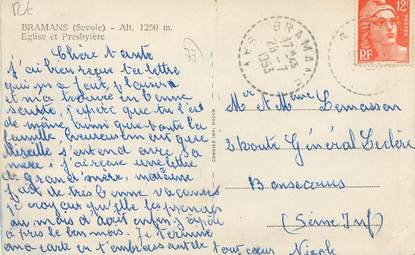 Rt
BRAMANS (Savoie) - Alt. 1250 m.
Eglise et Presbytère
73
Chère tante
j'ai bien reçue ta lettre
qui m'a fait plaisir
et m'a trouvée en bonne
santé, j'espère que tu l'es
de même ainsi que toute la
famille heureusement que
Mireille s'entend avec sa
mère; j'ai reçue une lettre
de grand'mère, maman
fait de très bonne vacances
à croire qu'elle les prenait
au mois d'Août enfin
à près le bon mois. Je termine
ma carte en t'embrassant de tout cœur Nicole
BRAMANS
17 45
20 -7
1953
12F
RF
Mr et Mme Lemasson
2 route Général Leclerc
Bonsecours
(Seine Inf)